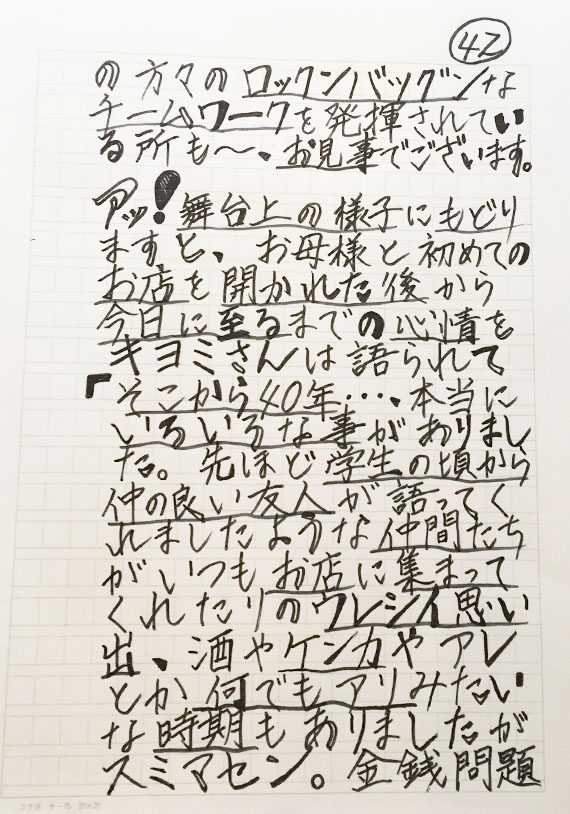 42
の方々のロックンバッグンな
チームワークを発揮されてい
る所も〜、お見事でございます。
アッ!舞台上の様子にもどり
ますと、お母様と初めての
お店を開かれた後から
今日に至るまでの心情を
キヨミさんは語られて
「そこから40年…、本当に
いろいろな事がありまし
た。先ほど学生の頃から
仲の良い友人が語ってく
れましたような仲間たち
がいつもお店に集まって
くれたりのウレシイ思い
出、酒やケンカやアレ
とか何でもアリみたい
な時期もありましたが
スミマセン。金銭問題
コクヨ ケー75 20×20